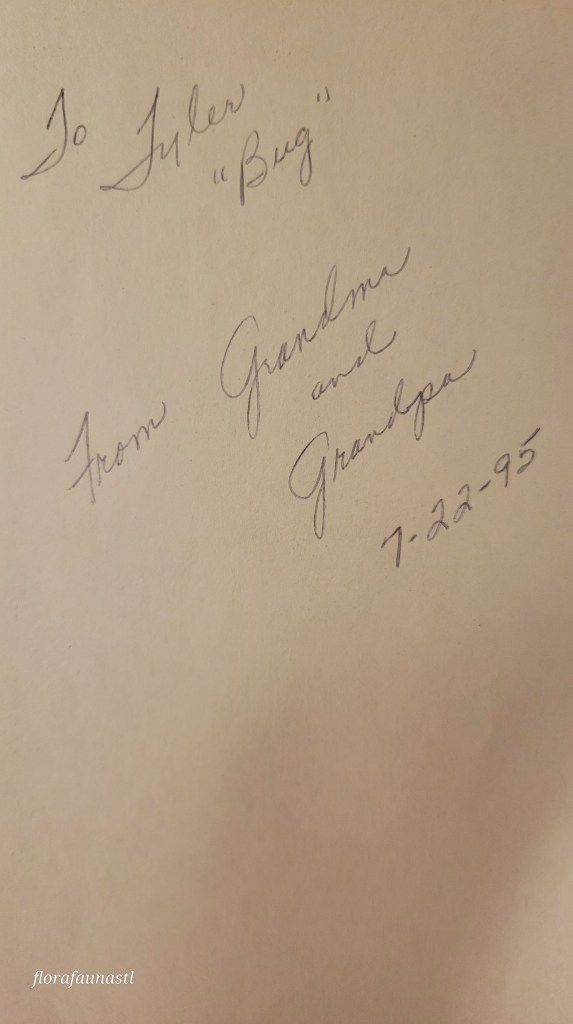 To Tyler
"Bug"
From Grandma
and
Grandpa
7-22-95
florafaunastl